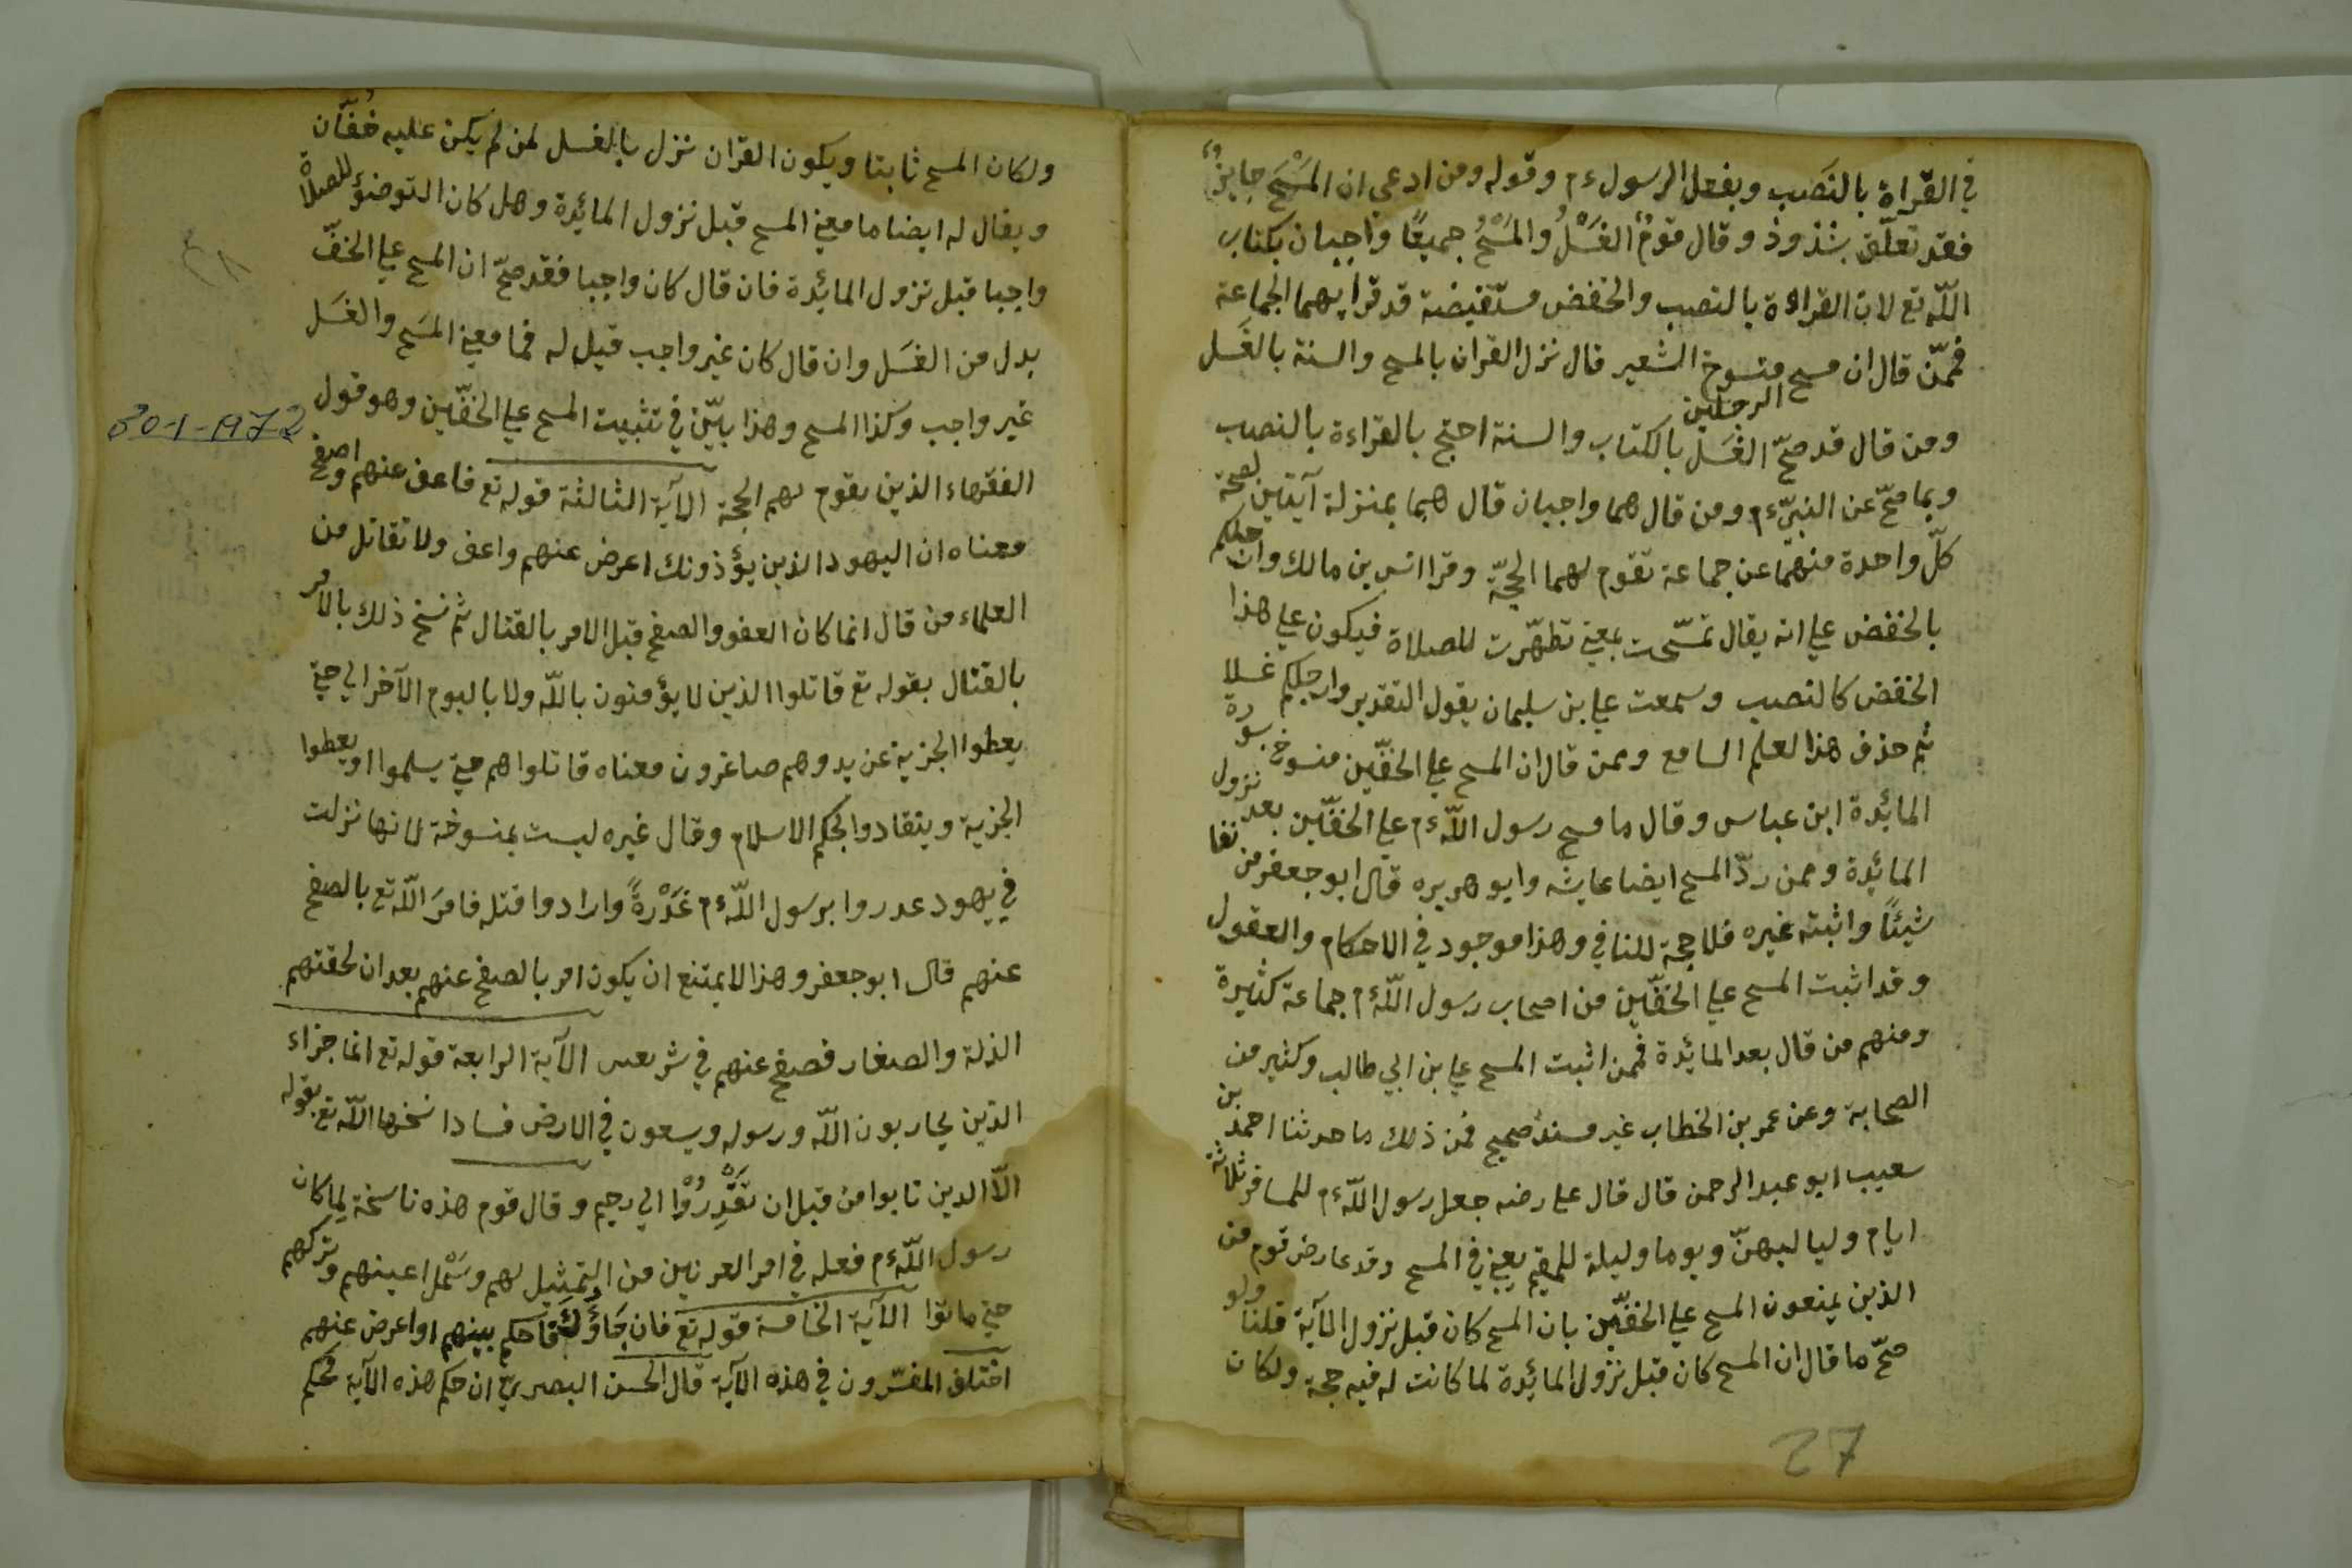 في القراة بالنصب وبفعل الرسول ءم وقوله ومن ادعي ان المَسْحَ جايزٌ
فقد تعلّق بشذوذ وقال قومٌ الغَسْلُ والمَسْحُ جميعًا واجبان بكتاب
اللّه تع لان القراءة بالنصب والخفض مستفيضة قد قرا بهما الجماعة
فممّن قال ان مسح الرجلين منسوخ الشعبي قال نزل القران بالمسح والسنة بالغَسل
ومن قال قد صحّ الغَسل بالكتاب والسنة احتج بالقراءة بالنصب
وبما صحّ عن النبيّ ءم ومن قال هما واجبان قال هما بمنزلة آيتين لصحة
كلّ واحدة منهما عن جماعة تقوم لهما الحجّة وقرا انس بن مالك وارجلكم
بالخفض علي انه يقال تمسّحت بمعني تطهّرت للصلاة فيكون علي هذا
الخفض كالنصب وسمعت علي بن سليمان يقول التقدير وارجلكم غسلا
ثم حذف هذا لعلم السامع وممن قال ان المسح علي الخفّين منسوخ بسورة
المائدة ابن عباس وقال ما مسح رسول اللّه ءم علي الخفّين بعد نزول
المائدة وممن ردّ المسح ايضا عايشه وابو هريره قال ابو جعفر من نفا
شيئًا واثبته غيره فلا حجة للنافي وهذا موجود في الاحكام والعقول
وقد اثبت المسح علي الخفّين من اصحاب رسول اللّه ءم جماعة كثيرة
ومنهم من قال بعد المائدة فممن اثبت المسح علي بن ابي طالب وكثير من
الصحابة وعن عمر بن الخطاب غير مسند صحيح فمن ذلك ما حدثنا احمد بن
سعيب ابو عبد الرحمن قال قال علي رضه جعل رسول اللّه ءم للمسافر ثلاثة
ايام ولياليهنّ ويوما وليلة للمقيم يعني في المسح وقد عارض قوم من
الذين يمنعون المسح علي الخفّين بان المسح كان قبل نزول الآية قلنا ولو
صحّ ما قال ان المسح كان قبل نزول المائدة لما كانت له فيه حجة ولكان
27
ولكان المسح ثابتا ويكون القران نزل بالغسل لمن لم يكن عليه خُفّان
ويقال له ايضا ما معني المسح قبل نزول المائدة وهل كان التوضؤ للصلاة
واجبا قبل نزول المائدة فان قال كان واجبا فقد صحّ ان المسح علي الخفّ
بدل من الغسَل وان قال كان غير واجب قيل له فما معني المسَح والغسَل
غير واجب وكذا المسح وهذا بيّن في تثبيت المسح علي الخفّين وهو قول
30-1-1972
الفقهاء الذين يقوم لهم الحجة الآية الثالثة قوله تع فاعف عنهم واصفح
معناه ان اليهود الذين يؤذونك اعرض عنهم واعف ولا تقاتل من
العلماء من قال انما كان العفو والصفح قبل الامر بالقتال ثم نسخ ذلك بالامر
بالقتال بقوله تع قاتلوا الذين لا يؤمنون باللّه ولا باليوم الآخر الي حتي
يعطوا الجزية عن يد وهم صاغرون معناه قاتلواهم حتي يسلموا او يعطوا
الجزية وينقادوا لحكم الاسلام وقال غيره ليست بمنسوخة لانها نزلت
في يهود عدروا برسول اللّه ءم غَدْرةً وارادوا قتله فامرَ اللّه تع بالصفح
عنهم قال ابو جعفر وهذا لا يمتنع ان يكون امر بالصفح عنهم بعد ان لحقتهم
الذلة والصغار فصفح عنهم في شر بعس الآية الرابعة قوله تع انما جزاء
الذين يحاربون اللّه ورسوله ويسعون في الارض فسادا نسخها اللّه تع بقوله
الّا الدين تابوا من قبل ان تقْدِرُوْا الي رحيم وقال قوم هذه ناسخة لِما كان
رسول اللّه ءم فعله في امر العرنيين من التمثيل بهم وسَمْل اعينهم وتركهم
حتي ماتوا الآية الخامسة قوله تع فان جَاؤُكَ فاحكم بينهم او اعرض عنهم
اختلف المفسّرون في هذه الآية قال الحسن البصريّ ان حكم هذه الآية محكم